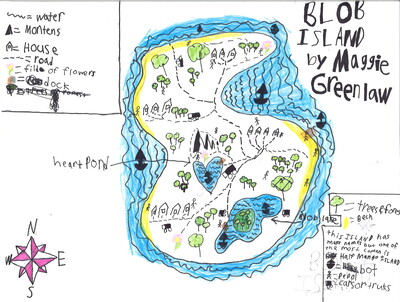 BLOB
ISLAND
by Maggie
Greenlaw
= water
= Montens
= House
= road
= fille of flowers
= dock
heart Pond
N
W E
S
= trees & fores
= Bech
this ISLAND has
many names but one of
the most comen is
Half Mango ISLAND
= bot
= pepol
= cars or truks